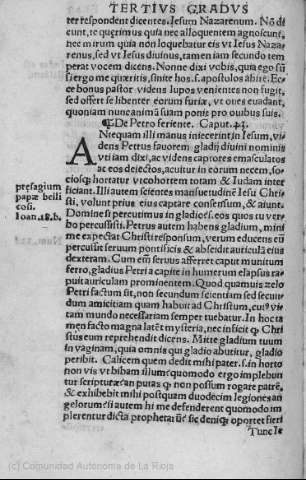 TERTIVS GRADVS
ter respondent dicentes. Iesum Nazarenum. Nõ di
cunt, te querimus quia nec alloquentem agnoscunt,
nec mirum quia non loquebatur eis vt Iesus Naza-
renus, sed vt Iesus diuinus, tamen iam secundo tem
perat vocem dicens. Nonne dixi vobis, quia ego sũ
si ergo me quæritis, sinite hos. s. apostolos abire. Ec
ce bonus pastor videns lupos venientes non fugit,
sed offert se libenter eorum furiæ, vt oues euadant,
quoniam nunc animã suam ponit pro ouibus suis.
¶ De Petro feriente. Caput. 41.
ANtequam illi manus iniecerint in Iesum, vi-
dens Petrus fauorem gladij diuini nominis
vti iam dixi, ac videns captores emasculatos
ac eos deiectos, acuitur in eorum necem, so-
ciosq; hortatur vt cohortem totam & Iudam inter
ficiant. Illi autem scientes mansuetudinẽ Iesu Chri
sti, volunt prius eius captare consensum, & aiunt.
Domine si percutimus in gladio? s. eos quos tu ver-
bo percussisti. Petrus autem habens gladium, mini
me expectat Christi responsum, verum educens eũ
percussit seruum pontificis & abscidit auriculã eius
dexteram. Cum em̃ seruus afferret caput munitum
ferro, gladius Petri a capite in humerum elapsus ra-
puit auriculam prominentem. Quod quamuis zelo
Petri factum sit, non secundum scientiam sed secun
dum amicitiam quam habuit ad Christum, cuiꝰ vi-
tam mundo necessariam semper tuebatur. In hoc ta
men facto magna latẽt mysteria, nec inficit ꝙ Chri
stus eum reprehendit dicens. Mitte gladium tuum
in vaginam, quia omnis qui gladio abutitur, gladio
peribit. Calicem quem dedit mihi pater. s. in horto
non vis vt bibam illum? quomodo ergo implebun
tur scripturæ? an putas ꝙ non possum rogare patrẽ,
& exhibebit mihi postquam duodecim legiones an
gelorum? si autem hi me defenderent quomodo im
plerentur dicta prophetarũ? sic denicꝗ oportet fieri
Tunc Ie
presagium
papæ belli
cosi.
Ioan. 18. b.
(c) Comunidad Autonoma de La Rioja